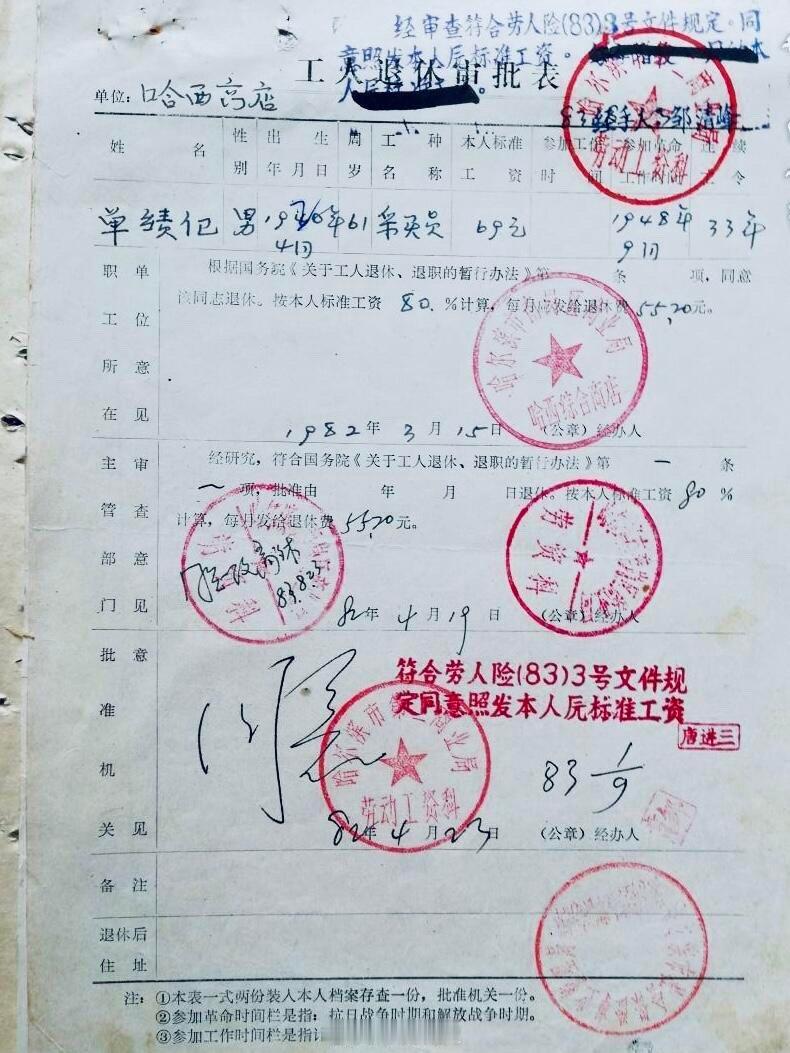 经审查符合劳人险(83)3号文件规定。同
意照发本人原标准工资。
工人退休审批表
单位：哈西商店
经手人：邹清峰
姓名 性别 出生年月日 周岁 工种名称 本人标准工资 参加工作时间 参加革命工作时间 连续工令
单绩 男 4月 61 采买员 69元 1948年9月 33年
职工所在单位意见
根据国务院《关于工人退休、退职的暂行办法》第 条 项，同意
该同志退休。按本人标准工资 80.％计算，每月应发给退休费55.20元。
哈西综合商店
1982年3月15日 （公章）经办人
主管部门审查意见
经研究，符合国务院《关于工人退休、退职的暂行办法》第一条
一项，批准由 年 月 日退休。按本人标准工资80％
计算，每月发给退休费55.20元。
劳资科
82年4月19日 （公章）经办人
批准机关意见
符合劳人险(83)3号文件规
定同意照发本人原标准工资
唐进三
劳动工资科
83 1/9
82年4月23日 （公章）经办人
备注
退休后住址
注：①本表一式两份装入本人档案存查一份，批准机关一份。
②参加革命时间栏是指：抗日战争时期和解放战争时期。
③参加工作时间栏是指